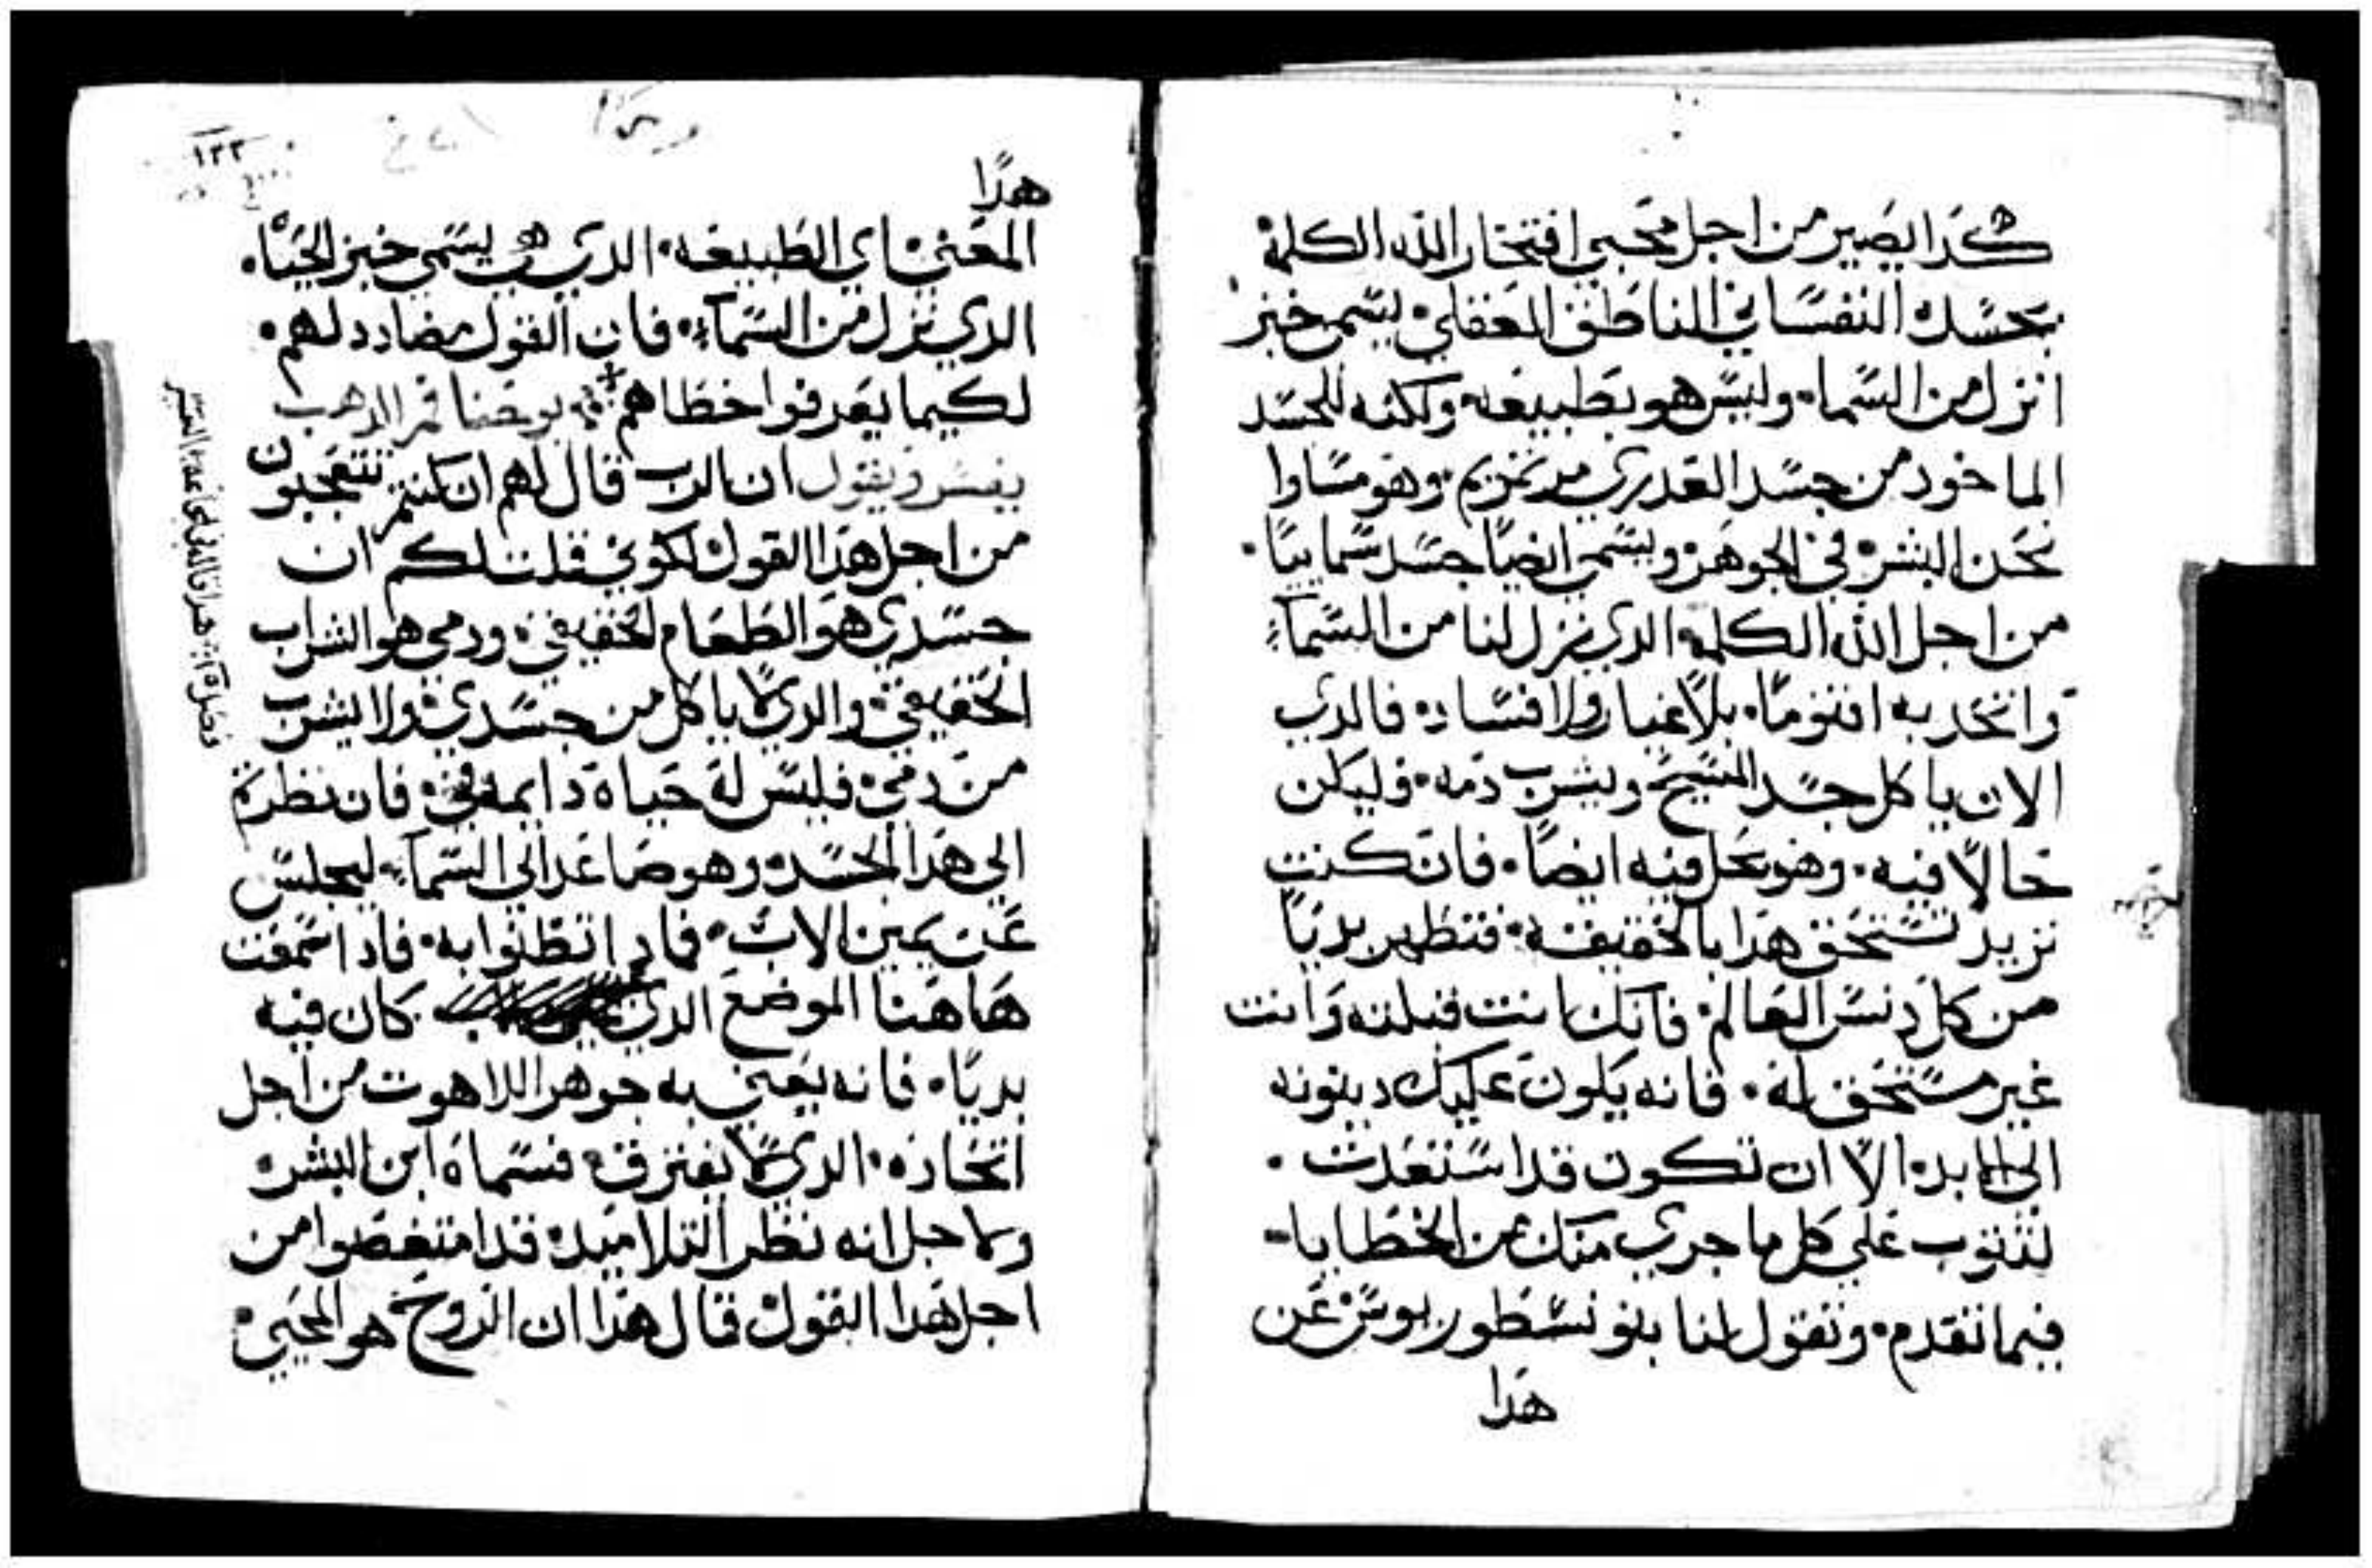 كدا يصير من اجل محبي افتخار الله الكلمة
بجسده النفساني الناطق العقلي يسمي خبز
انزل من السما وليس هو بطبيعه ولكنه للجسد
الماخود من جسد العدري مرتمريم وهو مساوا
نحن البشر في الجوهر ويسمي ايضًا جسد سماييًا
من اجل الله الكلمه الدي نزل لنا من السمآء
واتحد به اقنومًا بلا غيار ولا افساد فالدي
الان ياكل جسد المسيح ويشرب دمه وليكن
حالًا فيه وهو يحل فيه ايضًا فان كنت
تريد تستحق هدا بالحقيقه فتطهر بديًا
من كل دنس العالم فانك ان انت قبلته وانت
غير مستحق له فانه يكون عليك دينونه
الي الابد الا ان تكون قد استعدت
لتتوب علي كل ما جري منك من الخطايا
فيما تقدم وتقول لنا بنو نسطوريوس عن
هدا
١٢٢
هدا
المعني اي الطبيعه الدي هو يسمي خبز الحياه
الدي نزل من السمآء فان القول مضادد لهم
لكيما يعرفوا خطاهم يوحنا فم الدهب
يفسر ويقول ان الرب قال لهم ان كنتم تتعجبون
من اجل هدا القول لكوني قلت لكم ان
جسدي هو الطعام الحقيقي ودمي هو الشراب
الحقيقي والدي لا ياكل من جسدي ولا يشرب
من دمي فليس له حياة دايمه في فان نظرتم
الي هدا الجسد وهو صاعد الي السمآء ليجلس
عن يمين الاب فمادا تظنوا به فادا سمعت
هاهنا الموضع الدي كان فيه
بديًا فانه يعني به جوهر اللاهوت من اجل
اتحاده الدي لا يفترق فسماه ابن البشر
ولاجل انه نظر التلاميد قد امتغصوا من
اجل هدا القول قال هدا ان الروح هو المحيي